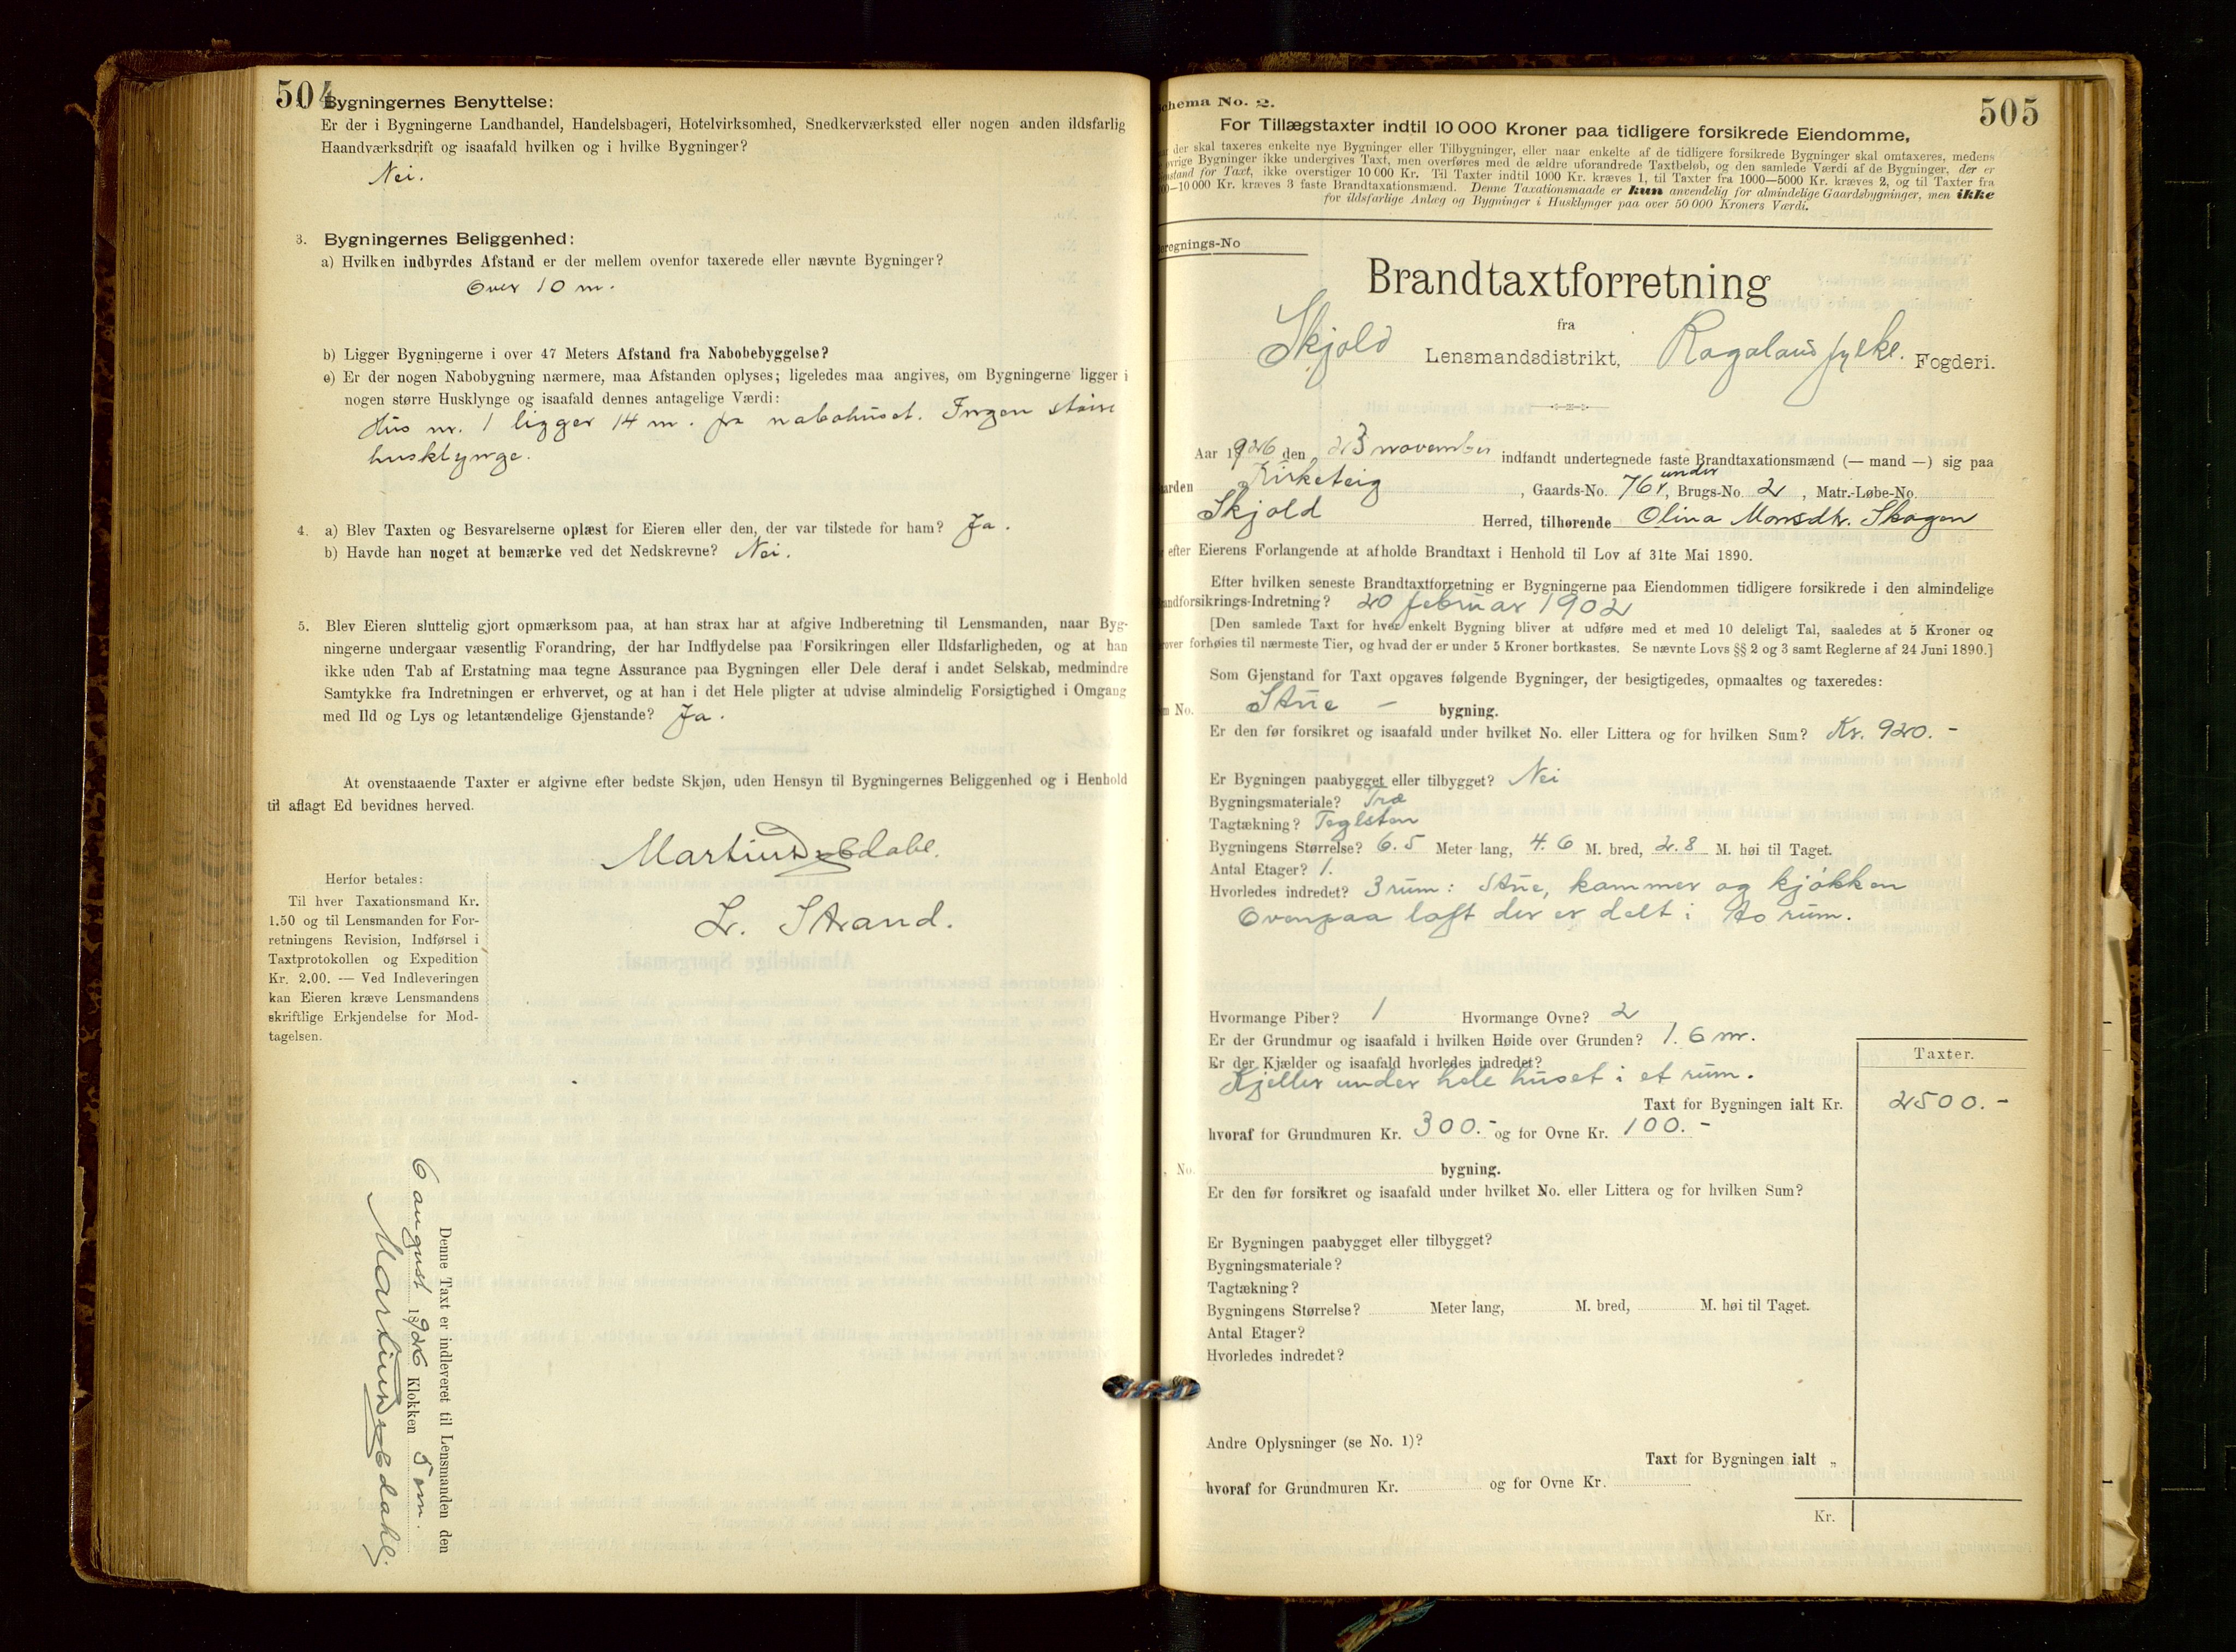 504
Bygningernes Benyttelse:
Er der i Bygningerne Landhandel, Handelsbageri, Hotelvirksomhed, Snedkerværksted eller nogen anden ildsfarlig
Haandværksdrift og isaafald hvilken og i hvilke Bygninger?
Nei.
3. Bygningernes Beliggenhed:
a) Hvilken indbyrdes Afstand er der mellem ovenfor taxerede eller nævnte Bygninger?
Over 10 m.
b) Ligger Bygningerne i over 47 Meters Afstand fra Nabobebyggelse?
c) Er der nogen Nabobygning nærmere, maa Afstanden oplyses; ligeledes maa angives, om Bygningerne ligger i
nogen større Husklynge og isaafald dennes antagelige Værdi:
Hus nr. 1 ligger 14 m. fra nabohuset. Ingen større
husklynge.
4. a) Blev Taxten og Besvarelserne oplæst for Eieren eller den, der var tilstede for ham? Ja.
b) Havde han noget at bemærke ved det Nedskrevne? Nei.
5. Blev Eieren sluttelig gjort opmærksom paa, at han strax har at afgive Indberetning til Lensmanden, naar Byg-
ningerne undergaar væsentlig Forandring, der har Indflydelse paa Forsikringen eller Ildsfarligheden, og at han
ikke uden Tab af Erstatning maa tegne Assurance paa Bygningen eller Dele deraf i andet Selskab, medmindre
Samtykke fra Indretningen er erhvervet, og at han i det Hele pligter at udvise almindelig Forsigtighed i Omgang
med Ild og Lys og letantændelige Gjenstande? Ja.
At ovenstaaende Taxter er afgivne efter bedste Skjøn, uden Hensyn til Bygningernes Beliggenhed og i Henhold
til aflagt Ed bevidnes herved.
L. Strand.
Herfor betales:
Til hver Taxationsmand Kr.
1.50 og til Lensmanden for For-
retningens Revision, Indførsel i
Taxtprotokollen og Expedition
Kr. 2.00. — Ved Indleveringen
kan Eieren kræve Lensmandens
skriftlige Erkjendelse for Mod-
tagelsen.
Denne Taxt er indleveret til Lensmanden den
6 august 1926 Klokken 5 em.
505
Schema No. 2.
For Tillægstaxter indtil 10 000 Kroner paa tidligere forsikrede Eiendomme,
der skal taxeres enkelte nye Bygninger eller Tilbygninger, eller naar enkelte af de tidligere forsikrede Bygninger skal omtaxeres, medens
øvrige Bygninger ikke undergives Taxt, men overføres med de ældre uforandrede Taxtbeløb, og den samlede Værdi af de Bygninger, der er
Gjenstand for Taxt, ikke overstiger 10 000 Kr. Til Taxter indtil 1000 Kr. kræves 1, til Taxter fra 1000—5000 Kr. kræves 2, og til Taxter fra
5000—10 000 Kr. kræves 3 faste Brandtaxationsmænd. Denne Taxationsmaade er kun anvendelig for almindelige Gaardsbygninger, men ikke
for ildsfarlige Anlæg og Bygninger i Husklynger paa over 50 000 Kroners Værdi.
Beregnings-No
Brandtaxtforretning
fra
Skjold Lensmandsdistrikt, Rogaland fylke. Fogderi.
Aar 1926 den 23 november indfandt undertegnede faste Brandtaxationsmænd (— mand —) sig paa
Gaarden Kirketeig, Gaards-No. 76, under Brugs-No. 2, Matr.-Løbe-No.
Skjold Herred, tilhørende Olina Monsdtr. Skogen
efter Eierens Forlangende at afholde Brandtaxt i Henhold til Lov af 31te Mai 1890.
Efter hvilken seneste Brandtaxtforretning er Bygningerne paa Eiendommen tidligere forsikrede i den almindelige
Brandforsikrings-Indretning? 20 februar 1902
[Den samlede Taxt for hver enkelt Bygning bliver at udføre med et med 10 deleligt Tal, saaledes at 5 Kroner og
derover forhøies til nærmeste Tier, og hvad der er under 5 Kroner bortkastes. Se nævnte Lovs §§ 2 og 3 samt Reglerne af 24 Juni 1890.]
Som Gjenstand for Taxt opgaves følgende Bygninger, der besigtigedes, opmaaltes og taxeredes:
No. Stue - bygning.
Er den før forsikret og isaafald under hvilket No. eller Littera og for hvilken Sum? Kr. 920.-
Er Bygningen paabygget eller tilbygget? Nei
Bygningsmateriale? Træ
Tagtækning? Teglsten
Bygningens Størrelse? 6.5 Meter lang, 4.6 M. bred, 2.8 M. høi til Taget.
Antal Etager? 1.
Hvorledes indredet? 3 rum: Stue, kammer og kjøkken
Ovenpaa loft der er delt i to rum.
Hvormange Piber? 1 Hvormange Ovne? 2
Er der Grundmur og isaafald i hvilken Høide over Grunden? 1.6 m.
Er der Kjælder og isaafald hvorledes indredet?
Kjeller under hele huset i et rum.
Taxter.
Taxt for Bygningen ialt Kr. 2500.-
hvoraf for Grundmuren Kr. 300.- og for Ovne Kr. 100.-
No. bygning.
Er den før forsikret og isaafald under hvilket No. eller Littera og for hvilken Sum?
Er Bygningen paabygget eller tilbygget?
Bygningsmateriale?
Tagtækning?
Bygningens Størrelse? Meter lang, M. bred, M. høi til Taget.
Antal Etager?
Hvorledes indredet?
Andre Oplysninger (se No. 1)?
Taxt for Bygningen ialt „
hvoraf for Grundmuren Kr. og for Ovne Kr.
Kr.